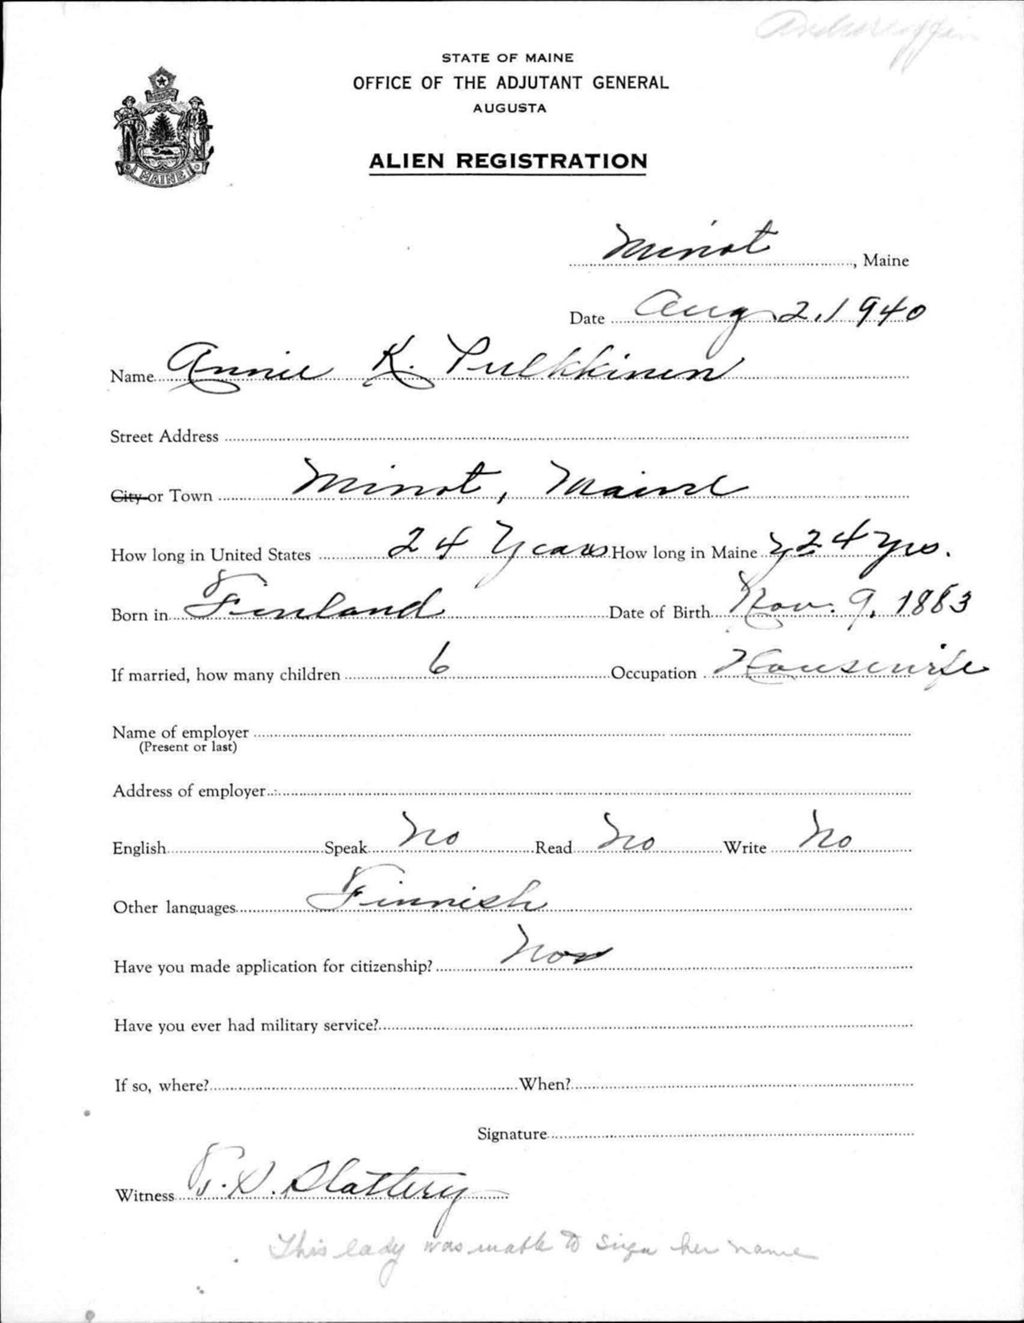 Androscoggin
STATE OF MAINE
OFFICE OF THE ADJUTANT GENERAL
AUGUSTA
MAINE
ALIEN REGISTRATION
Minot, Maine
Date Aug 2, 1940
Name Annie K. Pulkkinen
Street Address
City or Town Minot, Maine
How long in United States 24 Years How long in Maine 24 yrs.
Born in Finland Date of Birth Nov. 9, 1883
If married, how many children 6 Occupation Housewife
Name of employer
(Present or last)
Address of employer
English Speak No Read No Write No
Other languages Finnish
Have you made application for citizenship?
Have you ever had military service?
If so, where? When?
Signature
Witness Slattery
This lady was unable to sign her name